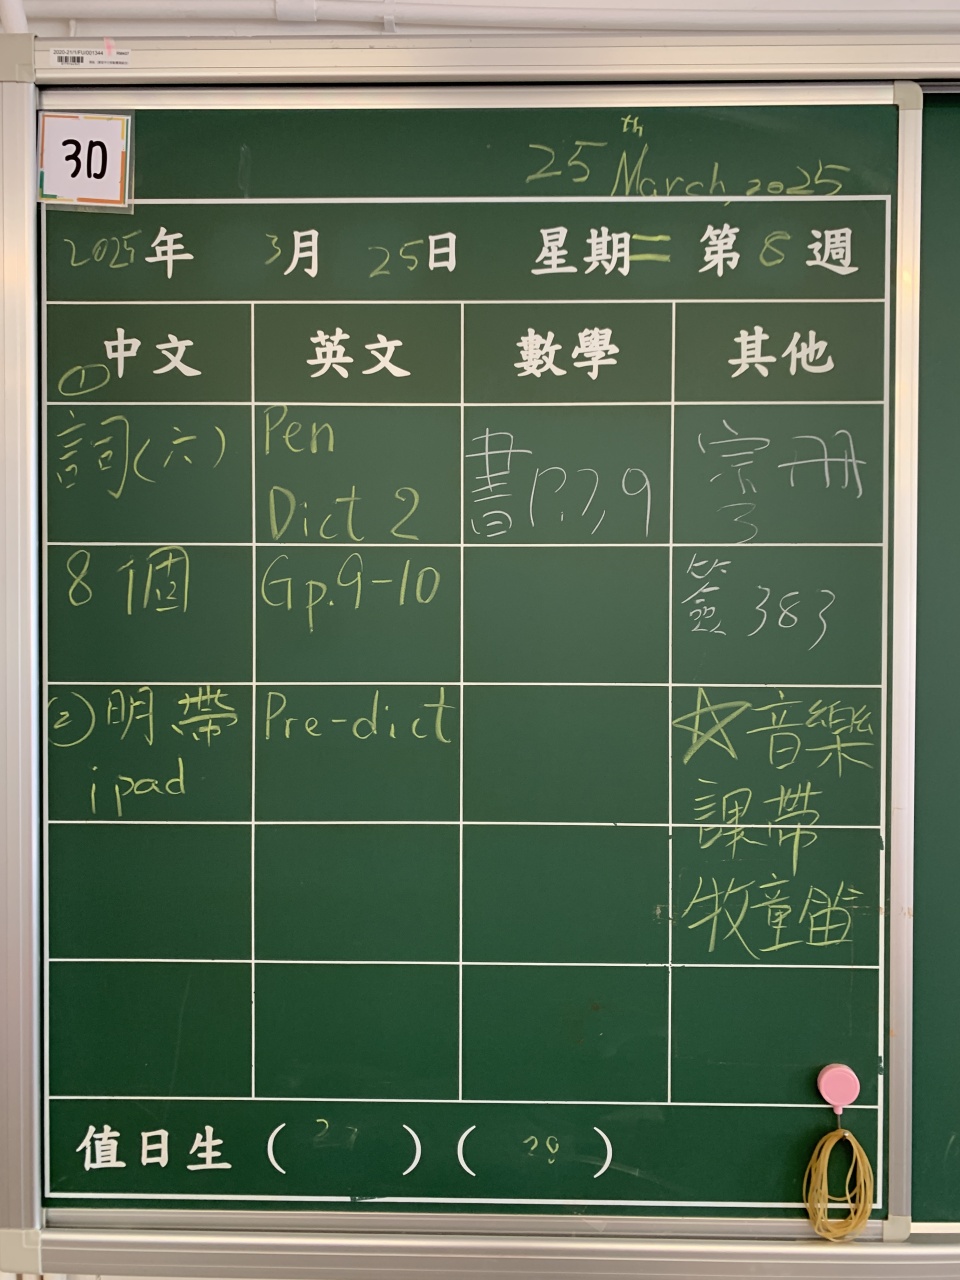 2020-21/1/FU/001344
3D
25th March, 2025
2025年 3月 25日 星期二 第8週
中文 英文 數學 其他
① 詞(六)
8個
② 明帶
ipad
Pen
Dict 2
Gp.9-10
Pre-dict
書P.7,9
宗冊
3
簽383
☆音樂
課帶
牧童笛
值日生 (27) (28)